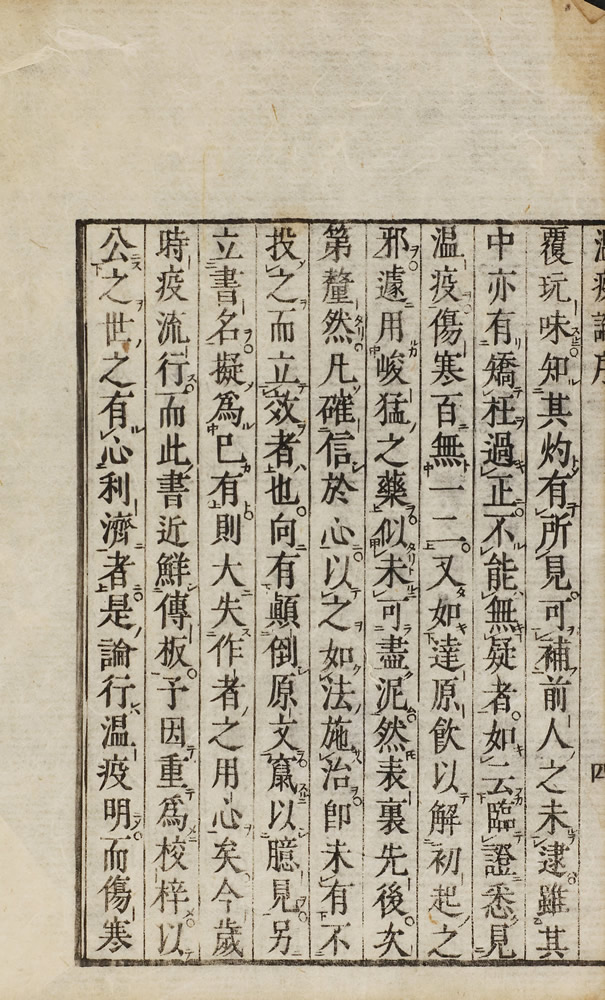 温疫論序 四
覆玩味知其灼有所見可補前人之未逮雖其
中亦有矯枉過正不能無疑者如云臨證悉見
温疫傷寒百無一二又如達原飲以解初起之
邪遽用峻猛之藥似未可盡泥然表裏先後次
第釐然凡確信於心以之如法施治卽未有不
投之而立效者也向有顛倒原文竄以臆見另
立書名擬爲已有則大失作者之用心矣今歲
時疫流行而此書近鮮傳板予因重爲校梓以
公之世之有心利濟者是論行温疫明而傷寒